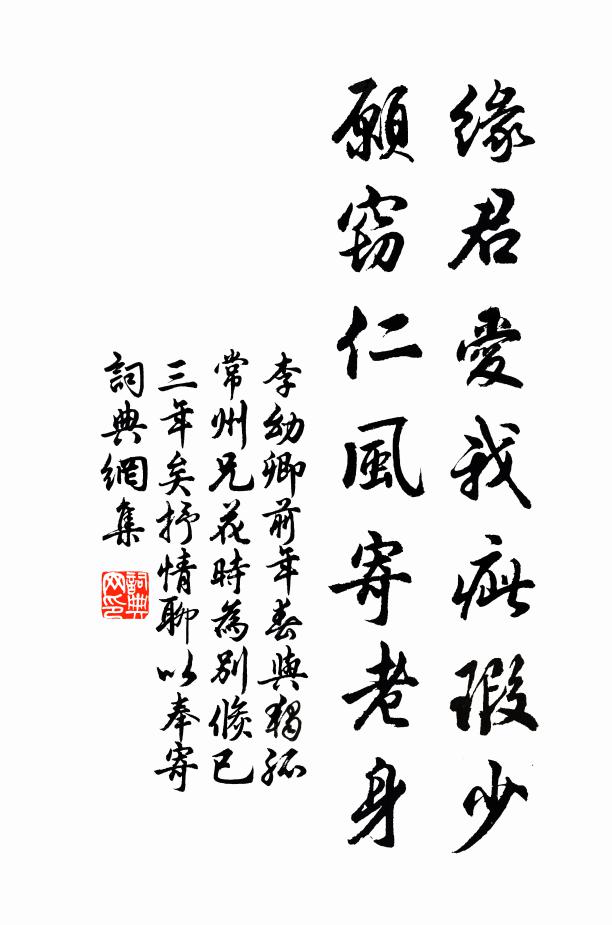 緣君愛我疵瑕少
願竊仁風寄老身
李幼卿前年春與獨孤
常州兄花時為別倏已
三年矣抒情聊以奉寄
詞典網集
詞典
网印